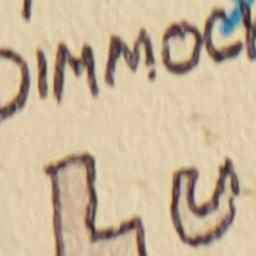 DIMMOCK
LU